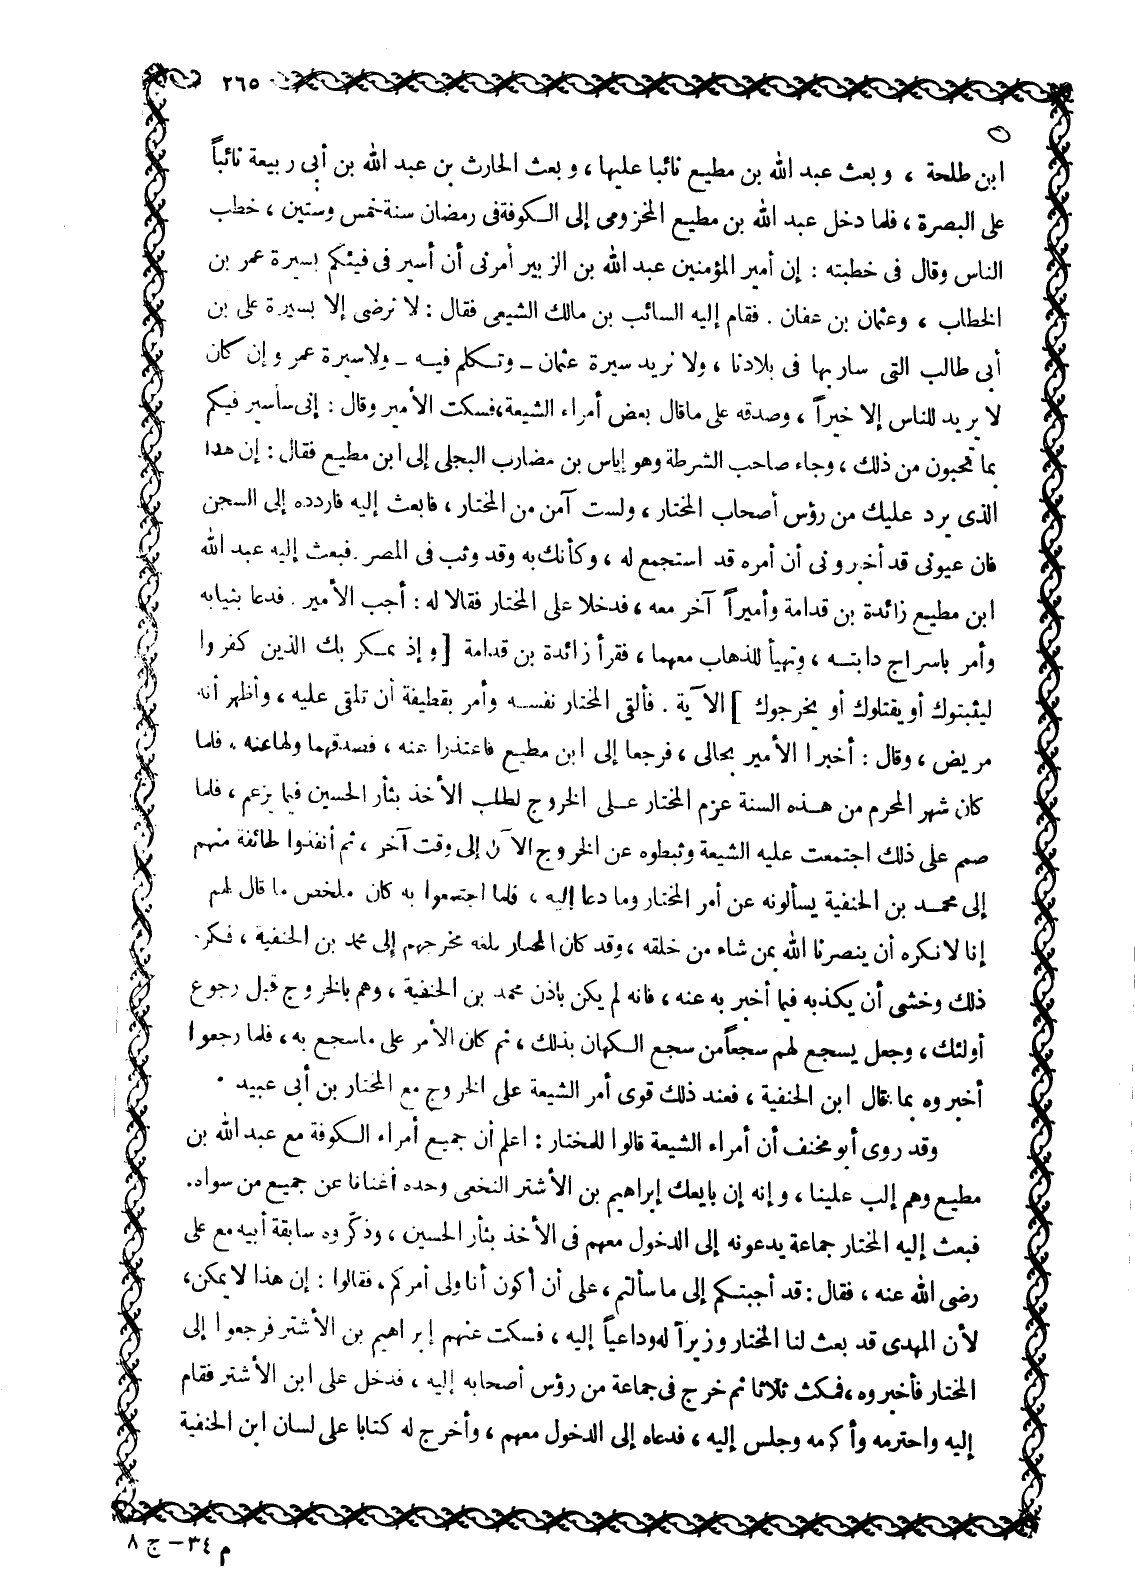 ٢٦٥
ابن طلحة ، وبعث عبد الله بن مطيع نائبا عليها ، وبعث الحارث بن عبد الله بن أبى ربيعة نائباً
على البصرة ، فلما دخل عبد الله بن مطيع المخزومى إلى الكوفة فى رمضان سنة خمس وستين ، خطب
الناس وقال فى خطبته : إن أمير المؤمنين عبد الله بن الزبير أمرنى أن أسير فى فيئكم بسيرة عمر بن
الخطاب ، وعثمان بن عفان . فقام إليه السائب بن مالك الشيعى فقال : لا نرضى إلا بسيرة على بن
أبى طالب التى سار بها فى بلادنا ، ولا نريد سيرة عثمان ـ وتكلم فيه ـ ولا سيرة عمر وإن كان
لا يريد للناس إلا خيراً ، وصدقه على ما قال بعض أمراء الشيعة ، فسكت الأمير وقال : إنى سأسير فيكم
بما تحبون من ذلك ، وجاء صاحب الشرطة وهو إياس بن مضارب البجلى إلى ابن مطيع فقال : إن هذا
الذى يرد عليك من رؤس أصحاب المختار ، ولست آمن من المختار ، فابعث إليه فاردده إلى السجن
فان عيونى قد أخبرونى أن أمره قد استجمع له ، وكأنك به وقد وثب فى المصر . فبعث إليه عبد الله
ابن مطيع زائدة بن قدامة وأميراً آخر معه ، فدخلا على المختار فقالا له : أجب الأمير . فدعا بثيابه
وأمر باسراج دابته ، وتهيأ للذهاب معهما ، فقرأ زائدة بن قدامة [ وإذ يمكر بك الذين كفروا
ليثبتوك أو يقتلوك أو يخرجوك ] الآية . فألقى المختار نفسه وأمر بقطيفة أن تلقى عليه ، وأظهر أنه
مريض ، وقال : أخبرا الأمير بحالى ، فرجعا إلى ابن مطيع فاعتذرا عنه ، فصدقهما ولها عنه . فلما
كان شهر المحرم من هذه السنة عزم المختار على الخروج لطلب الأخذ بثأر الحسين فيما يزعم ، فلما
صمم على ذلك اجتمعت عليه الشيعة وثبطوه عن الخروج الآن إلى وقت آخر ، ثم أنفذوا طائفة منهم
إلى محمد بن الحنفية يسألونه عن أمر المختار وما دعا إليه ، فلما اجتمعوا به كان ملخص ما قال لهم
إنا لا نكره أن ينصرنا الله بمن شاء من خلقه ، وقد كان المختار بلغه مخرجهم إلى محمد بن الحنفية ، فكره
ذلك وخشى أن يكذبه فيما أخبر به عنه ، فانه لم يكن باذن محمد بن الحنفية ، وهم بالخروج قبل رجوع
أولئك ، وجعل يسجع لهم سجعاً من سجع الكهان بذلك ، ثم كان الأمر على ما سجع به ، فلما رجعوا
أخبروه بما قال ابن الحنفية ، فعند ذلك قوى أمر الشيعة على الخروج مع المختار بن أبى عبيد .
وقد روى أبو مخنف أن أمراء الشيعة قالوا للمختار : اعلم أن جميع أمراء الكوفة مع عبد الله بن
مطيع وهم إلب علينا ، وإنه إن بايعك إبراهيم بن الأشتر النخعى وحده أغنانا عن جميع من سواه .
فبعث إليه المختار جماعة يدعونه إلى الدخول معهم فى الأخذ بثأر الحسين ، وذكّروه سابقة أبيه مع على
رضى الله عنه ، فقال : قد أجبتكم إلى ما سألتم ، على أن أكون أنا ولى أمركم ، فقالوا : إن هذا لا يمكن ،
لأن المهدى قد بعث لنا المختار وزيراً له وداعياً إليه ، فسكت عنهم إبراهيم بن الأشتر فرجعوا إلى
المختار فأخبروه ، فمكث ثلاثا ثم خرج فى جماعة من رؤس أصحابه إليه ، فدخل على ابن الأشتر فقام
إليه واحترمه وأكرمه وجلس إليه ، فدعاه إلى الدخول معهم ، وأخرج له كتابا على لسان ابن الحنفية
م ٣٤ - ج ٨